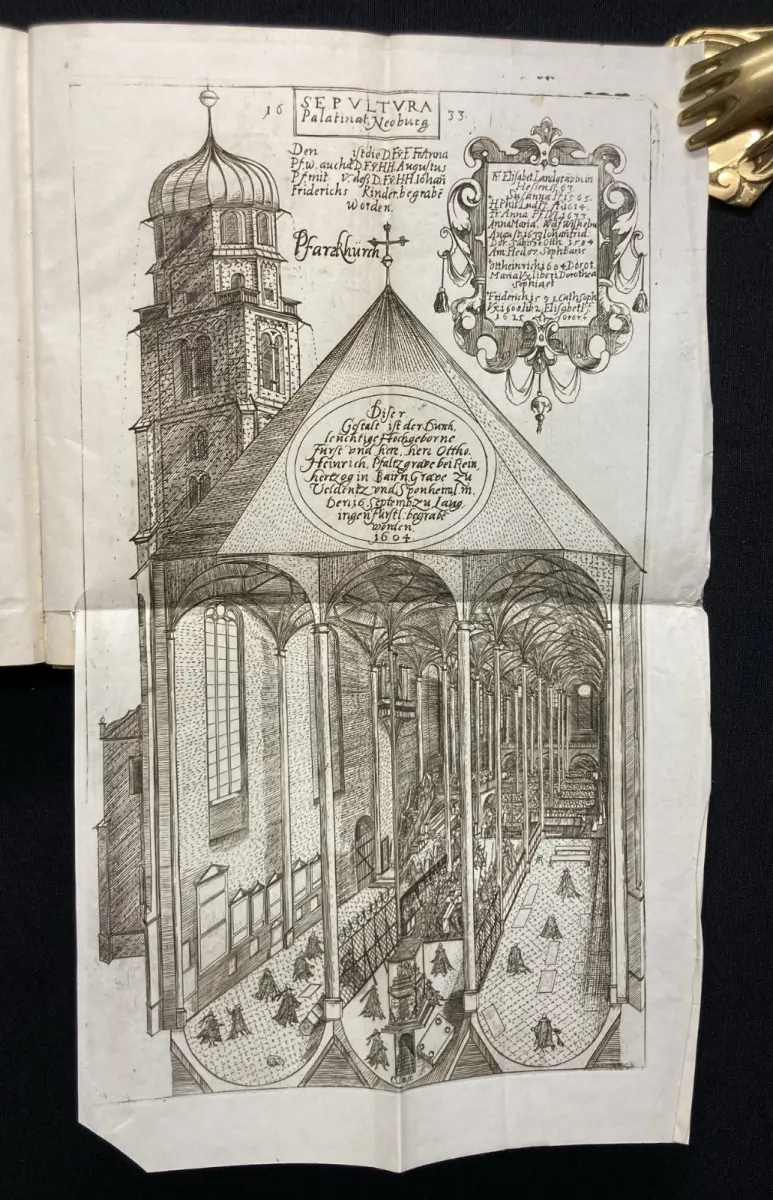 16 SEPVLTVRA 33.
Palatinat, Neoburg
Den ist die D.F.v.F. Fr Anna
Pf.w. auch d D.F.v.H.H. Augustus
Pf mit V. deß D.F.v.H.H. Iohañ
Friderichs Kinder begrabẽ
worden.
Pfarrkhürch
Fr. Elisabet Landgrävin in
Hessen 1563
Susanna Pf 1565.
H. Phil. Lud Pf. A 1614.
Fr. Anna Pf.
Anna Maria. Wolf Wilhelm
August. 1632 Iohan frid.
Dor. Sabin 1598 Oth. 1594
Am. Hedw. Soph. Baris
Ottheinrich 1604 Dorot.
Maria Vx. liberi Dorothea
Sophia et
Friderich 1591 Cath. Soph
Vx. 1608 lib 2. Elisabet Pf.
1625 soror.
Diser
Gestalt ist der Durch,
leüchtige Hochgeborne
Fürst vnd herr, herr Ottho,
Heinrich, Pfaltzgrave bei Rein,
hertzog in Bairn, Grave zu
Veldentz vnd Sponheim, m.
Den 16 Septemb zu Laug
ingen fürstl. begrabẽ
worden.
1604.